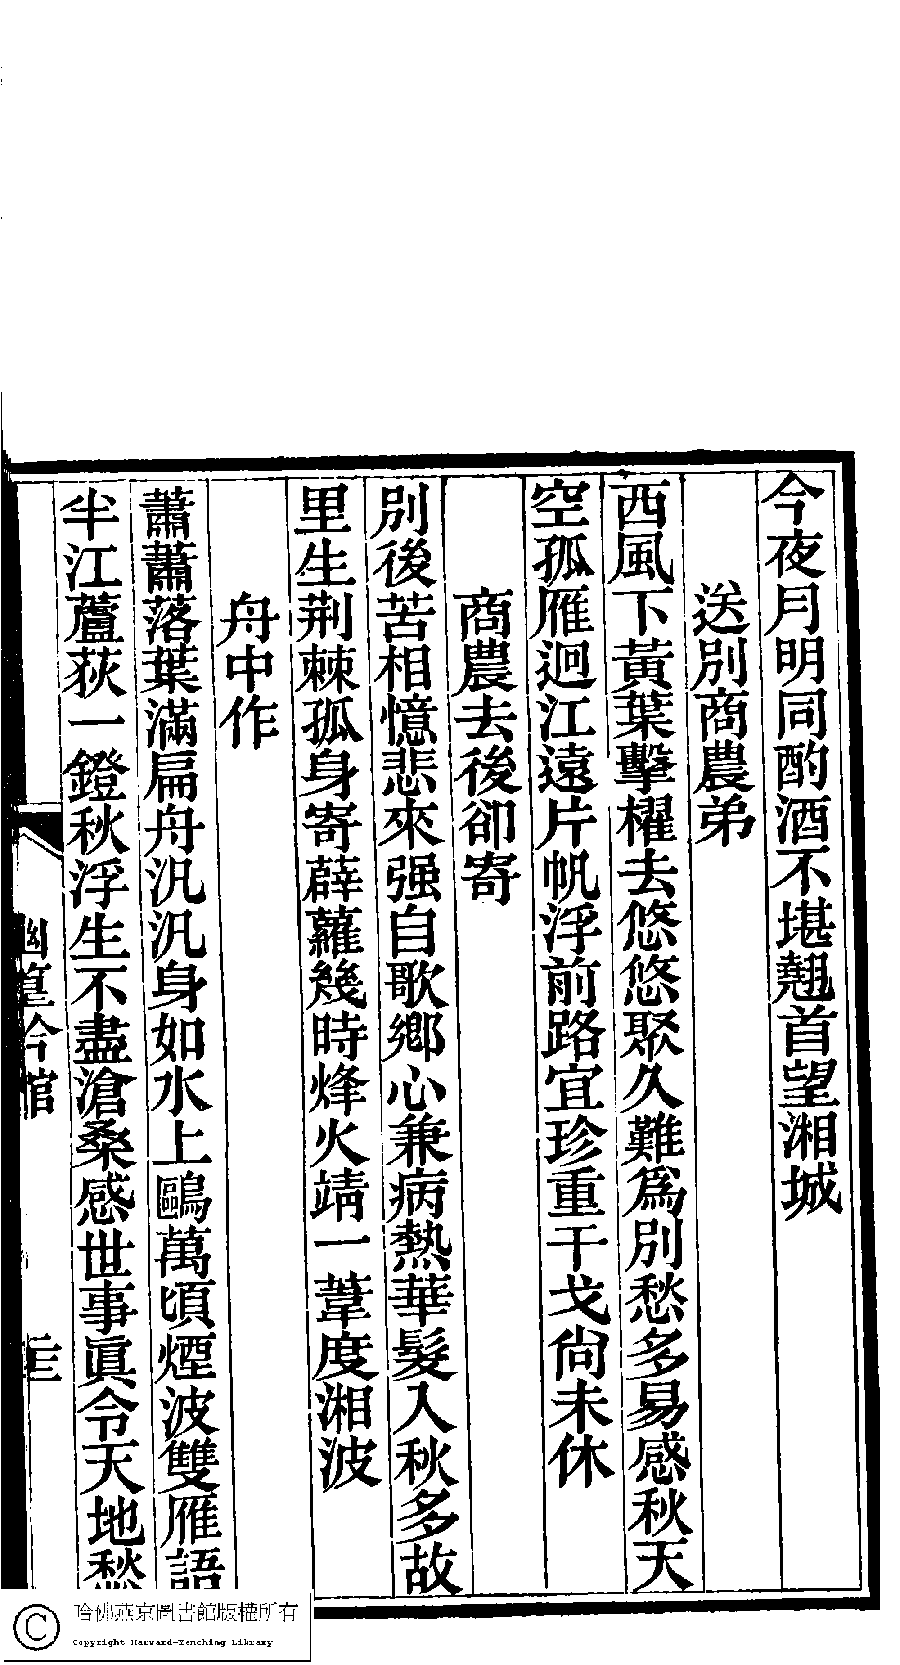 今夜月明同酌酒不堪翹首望湘城
送別商農弟
西風下黃葉擊櫂去悠悠聚久難爲別愁多易感秋天
空孤雁迥江遠片帆浮前路宜珍重干戈尙未休
商農去後卻寄
別後苦相憶悲來强自歌鄉心兼病熱華髮入秋多故
里生荆棘孤身寄薜蘿幾時烽火靖一葦度湘波
舟中作
蕭蕭落葉滿扁舟汎汎身如水上鷗萬頃煙波雙雁語
半江蘆荻一鐙秋浮生不盡滄桑感世事眞令天地愁
哈佛燕京圖書館版權所有
Copyright Harvard-Yenching Library